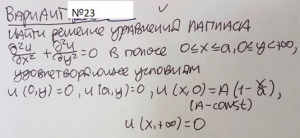 ВАРИАНТ №23
НАЙТИ РЕШЕНИЕ УРАВНЕНИЯ ЛАПЛАСА
∂²u/∂x² + ∂²u/∂y² = 0 В полосе 0≤x≤a, 0≤y<+∞,
удовлетворяющее условиям
u(0,y)=0, u(a,y)=0, u(x,0)=A(1-x/a)
(A-const)
u(x,+∞)=0